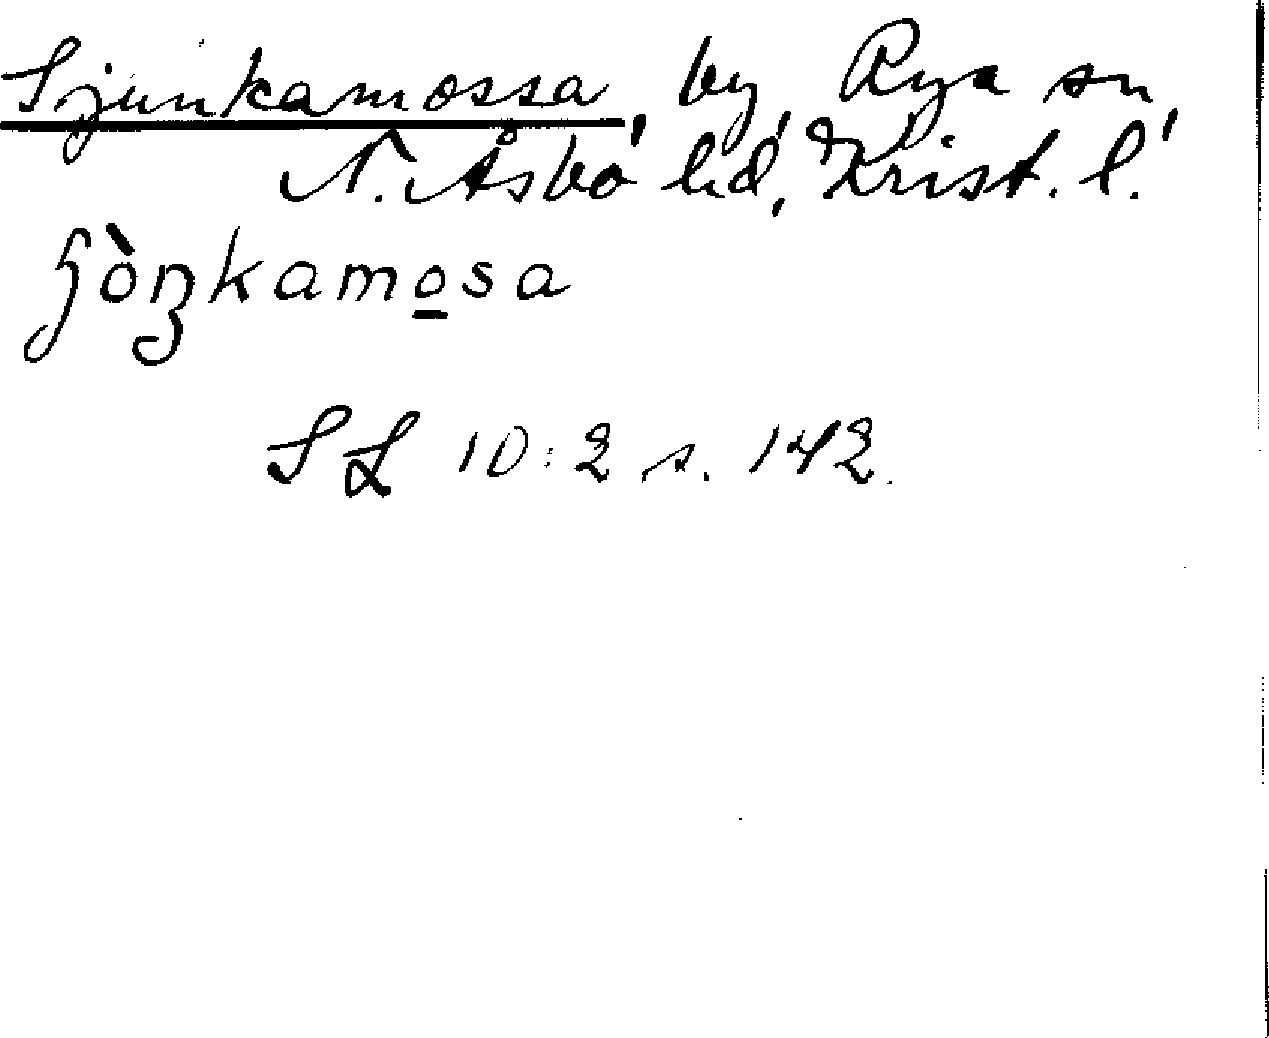 Sjunkamossa, by, Rya sn,
N. Åsbo hd, Krist. l.
ɧòŋkamo̲sa
SL 10:2 s. 142.